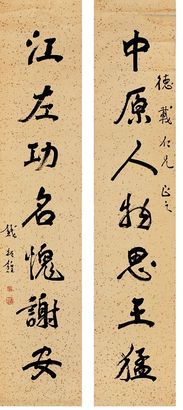 德載仁兄正之
中原人物思王猛
江左功名愧謝安